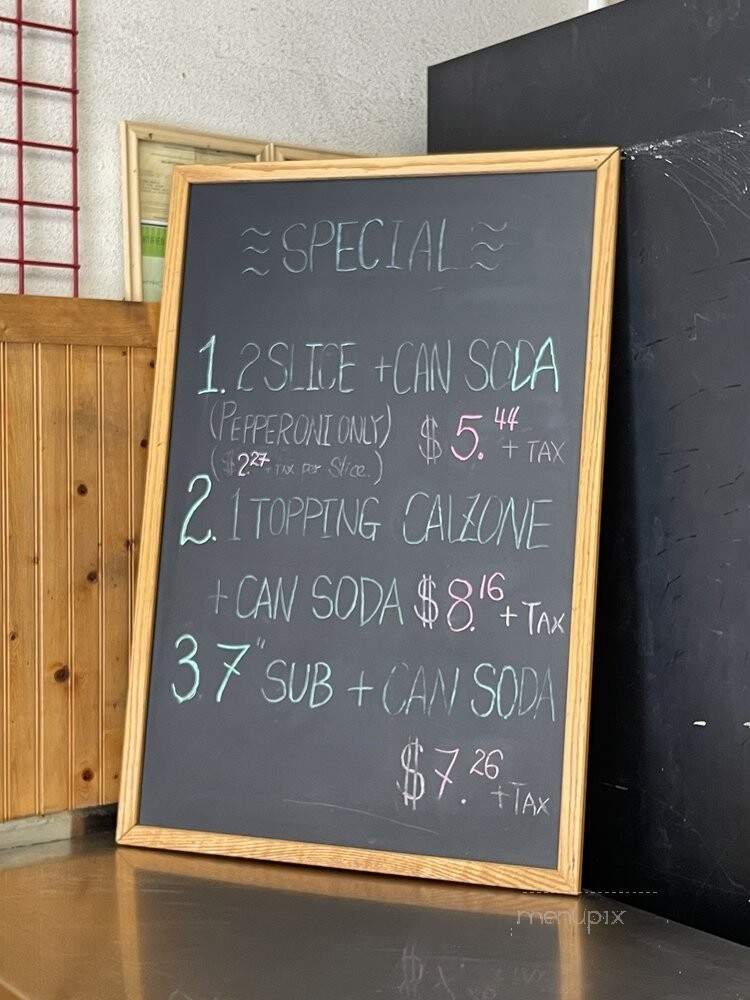 SPECIAL
1. 2 SLICE + CAN SODA
(PEPPERONI ONLY) $5.44 + TAX
($2.27 + TAX per Slice.)
2. 1 TOPPING CALZONE
+ CAN SODA $8.16 + TAX
3 7" SUB + CAN SODA
$7.26 + TAX
menupix